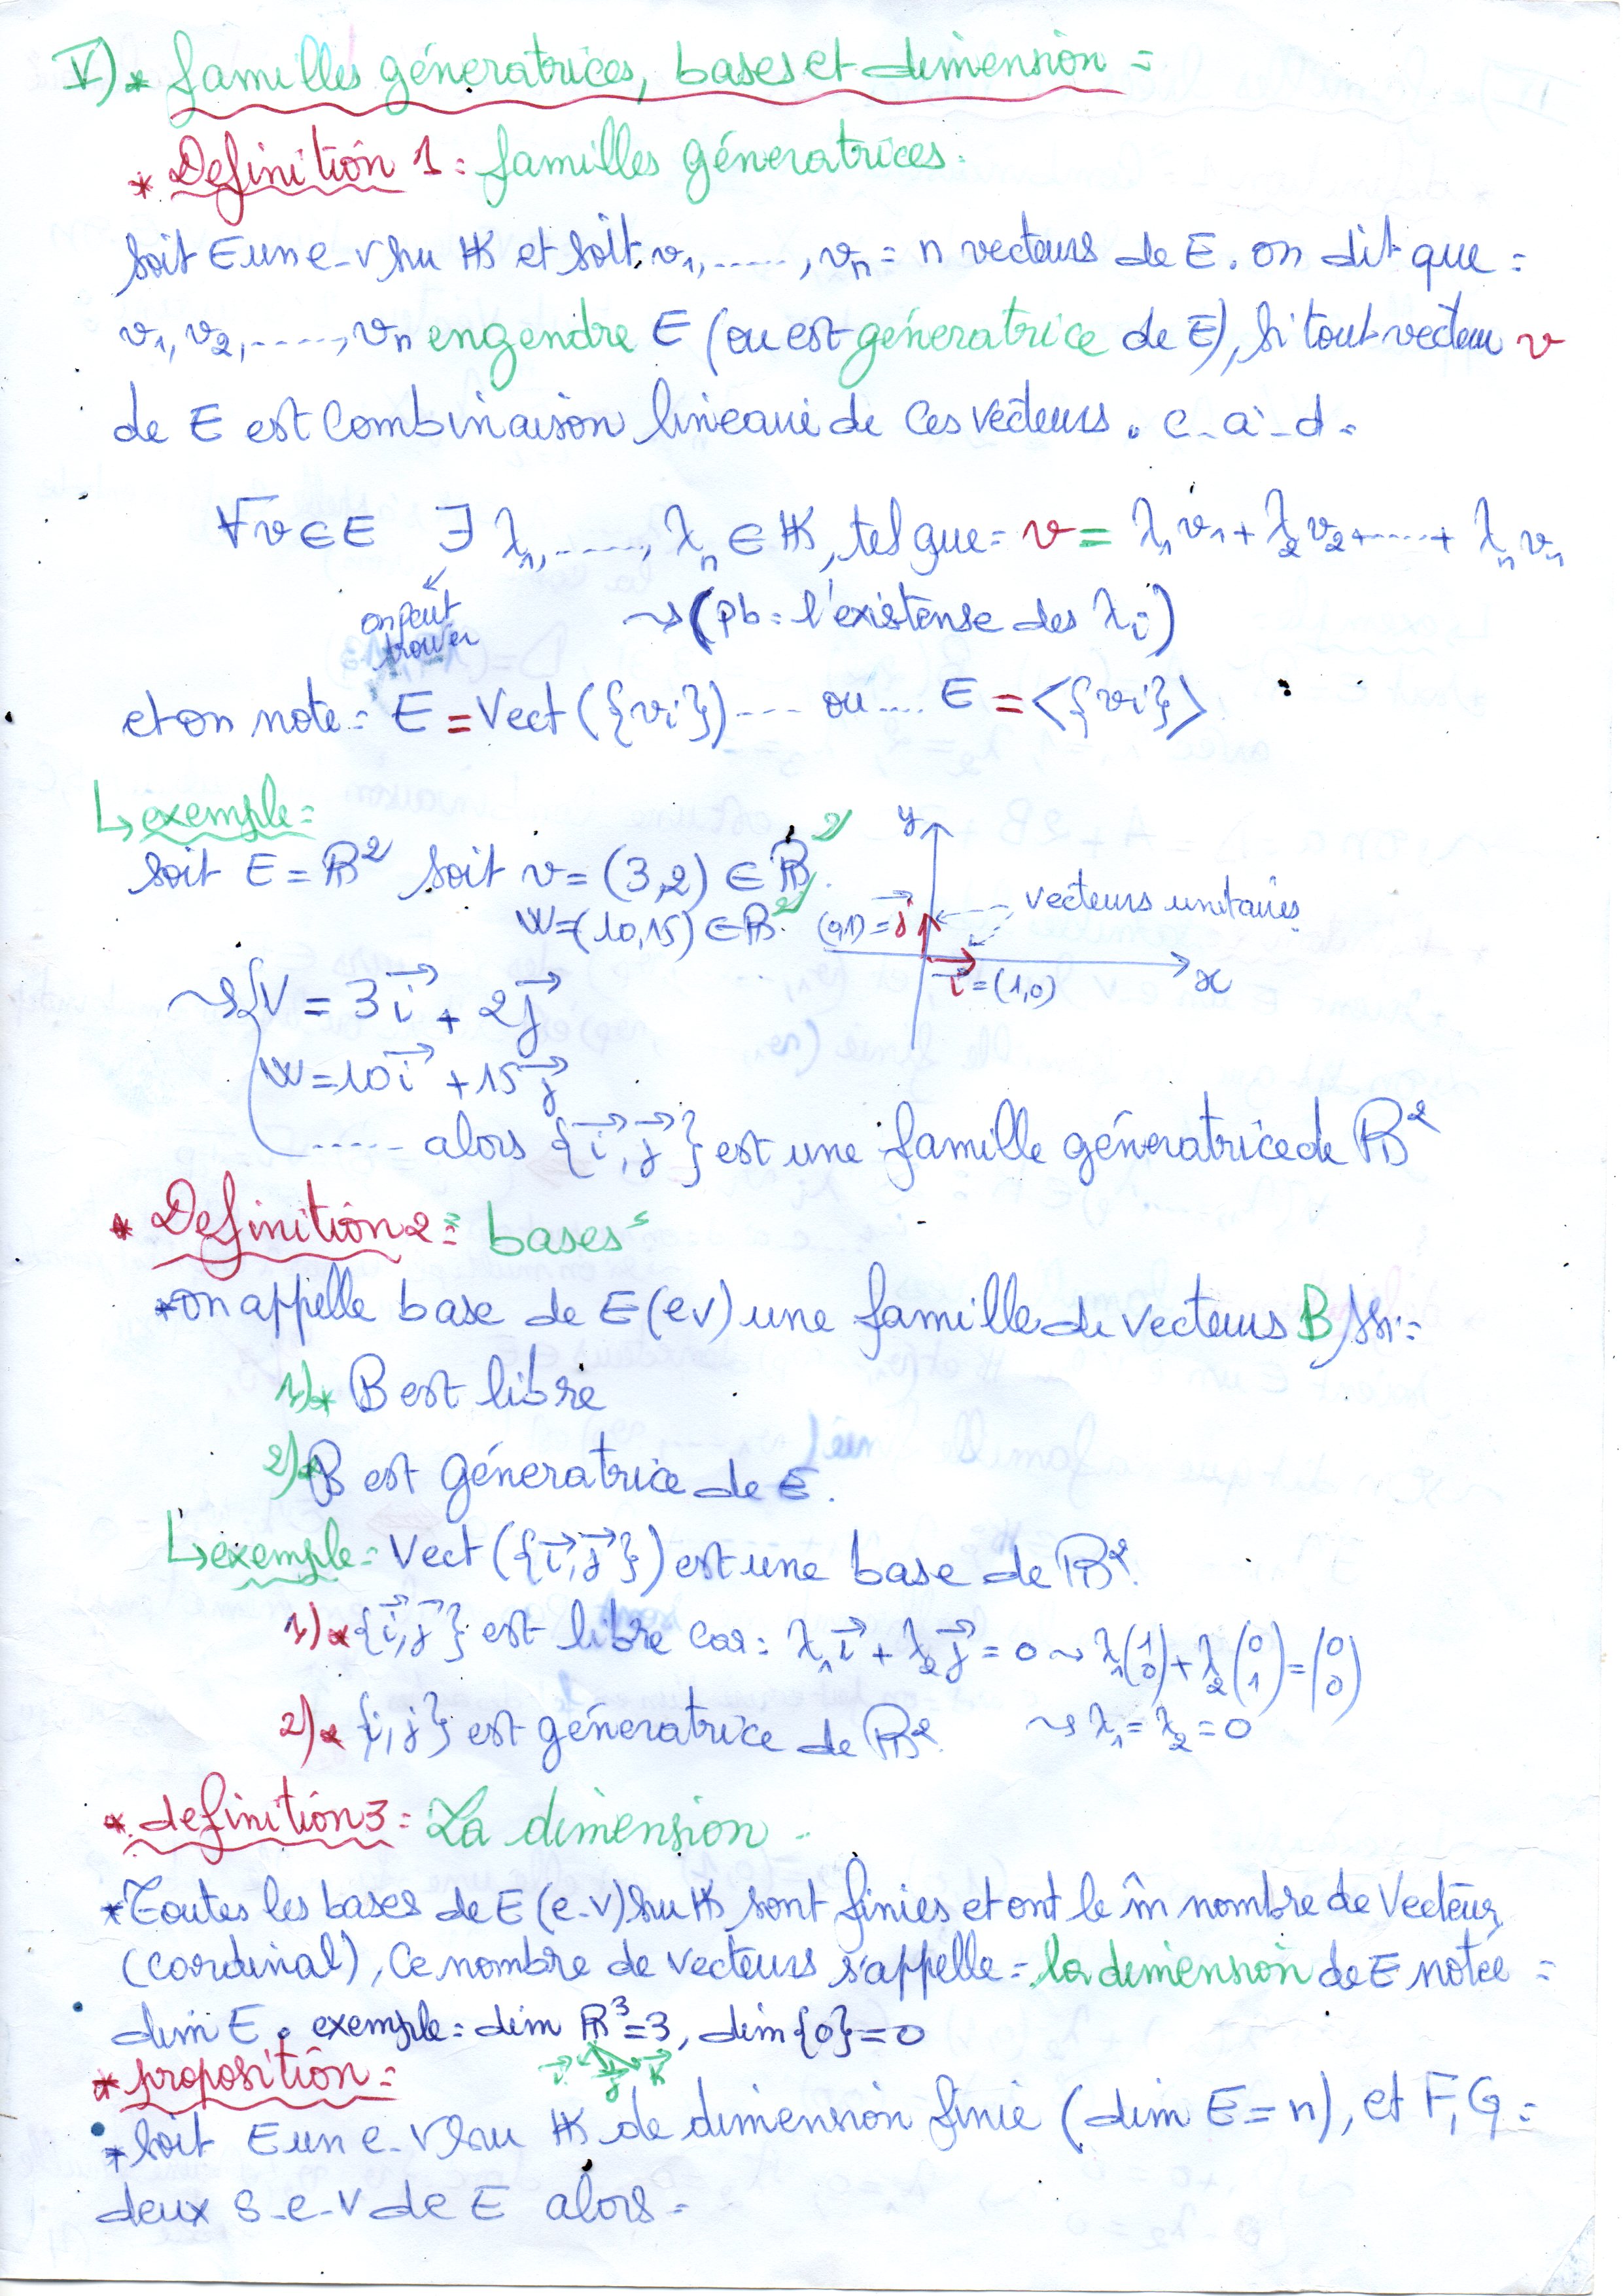 V)* familles géneratrices, bases et dimension =
* Definition 1 : familles géneratrices.
Soit E un e-v su 𝕂 et soit: v₁, ......, vₙ = n vecteurs de E. on dit que =
v₁, v₂, ....., vₙ engendre E (ou est géneratrice de E), si tout vecteur v
de E est Combinaison lineaire de ces vecteurs. c-à-d =
∀v∈E ∃ λ₁, ......, λₙ ∈ 𝕂, tel que = v = λ₁v₁ + λ₂v₂ + ...... + λₙvₙ
on peut trouver
⇝ (pb = l'existense des λᵢ)
et on note = E = Vect({vi}) .... ou .... E = <{vi}>
↳ exemple =
soit E = ℝ² soit v = (3,2) ∈ ℝ²
W = (10,15) ∈ ℝ²
y
vecteurs unitaires
(0,1) = j⃗
x
i⃗ = (1,0)
⇝ { V = 3i⃗ + 2j⃗
W = 10i⃗ + 15j⃗
..... alors {i⃗, j⃗} est une famille géneratrice de ℝ²
* Definition 2 = bases
* on appelle base de E (ev) une famille de vecteurs B ssi =
1)* B est libre
2)* B est géneratrice de E.
↳ exemple = Vect({i⃗, j⃗}) est une base de ℝ².
1)* {i⃗, j⃗} est libre car : λ₁i⃗ + λ₂j⃗ = 0 ⇝ λ₁(1 0) + λ₂(0 1) = (0 0)
2)* {i, j} est géneratrice de ℝ². ⇝ λ₁ = λ₂ = 0
* definition 3 = La dimension.
* Toutes les bases de E (e-v) su 𝕂 sont finies et ont le m̂ nombre de Vecteurs
(cardinal), Ce nombre de vecteurs s'appelle = la dimension de E notée =
dim E. exemple = dim ℝ³ = 3, dim {0} = 0
i⃗ j⃗ k⃗
* proposition =
* soit E un e-v su 𝕂 de dimension finie (dim E = n), et F, G =
deux s-e-v de E alors =